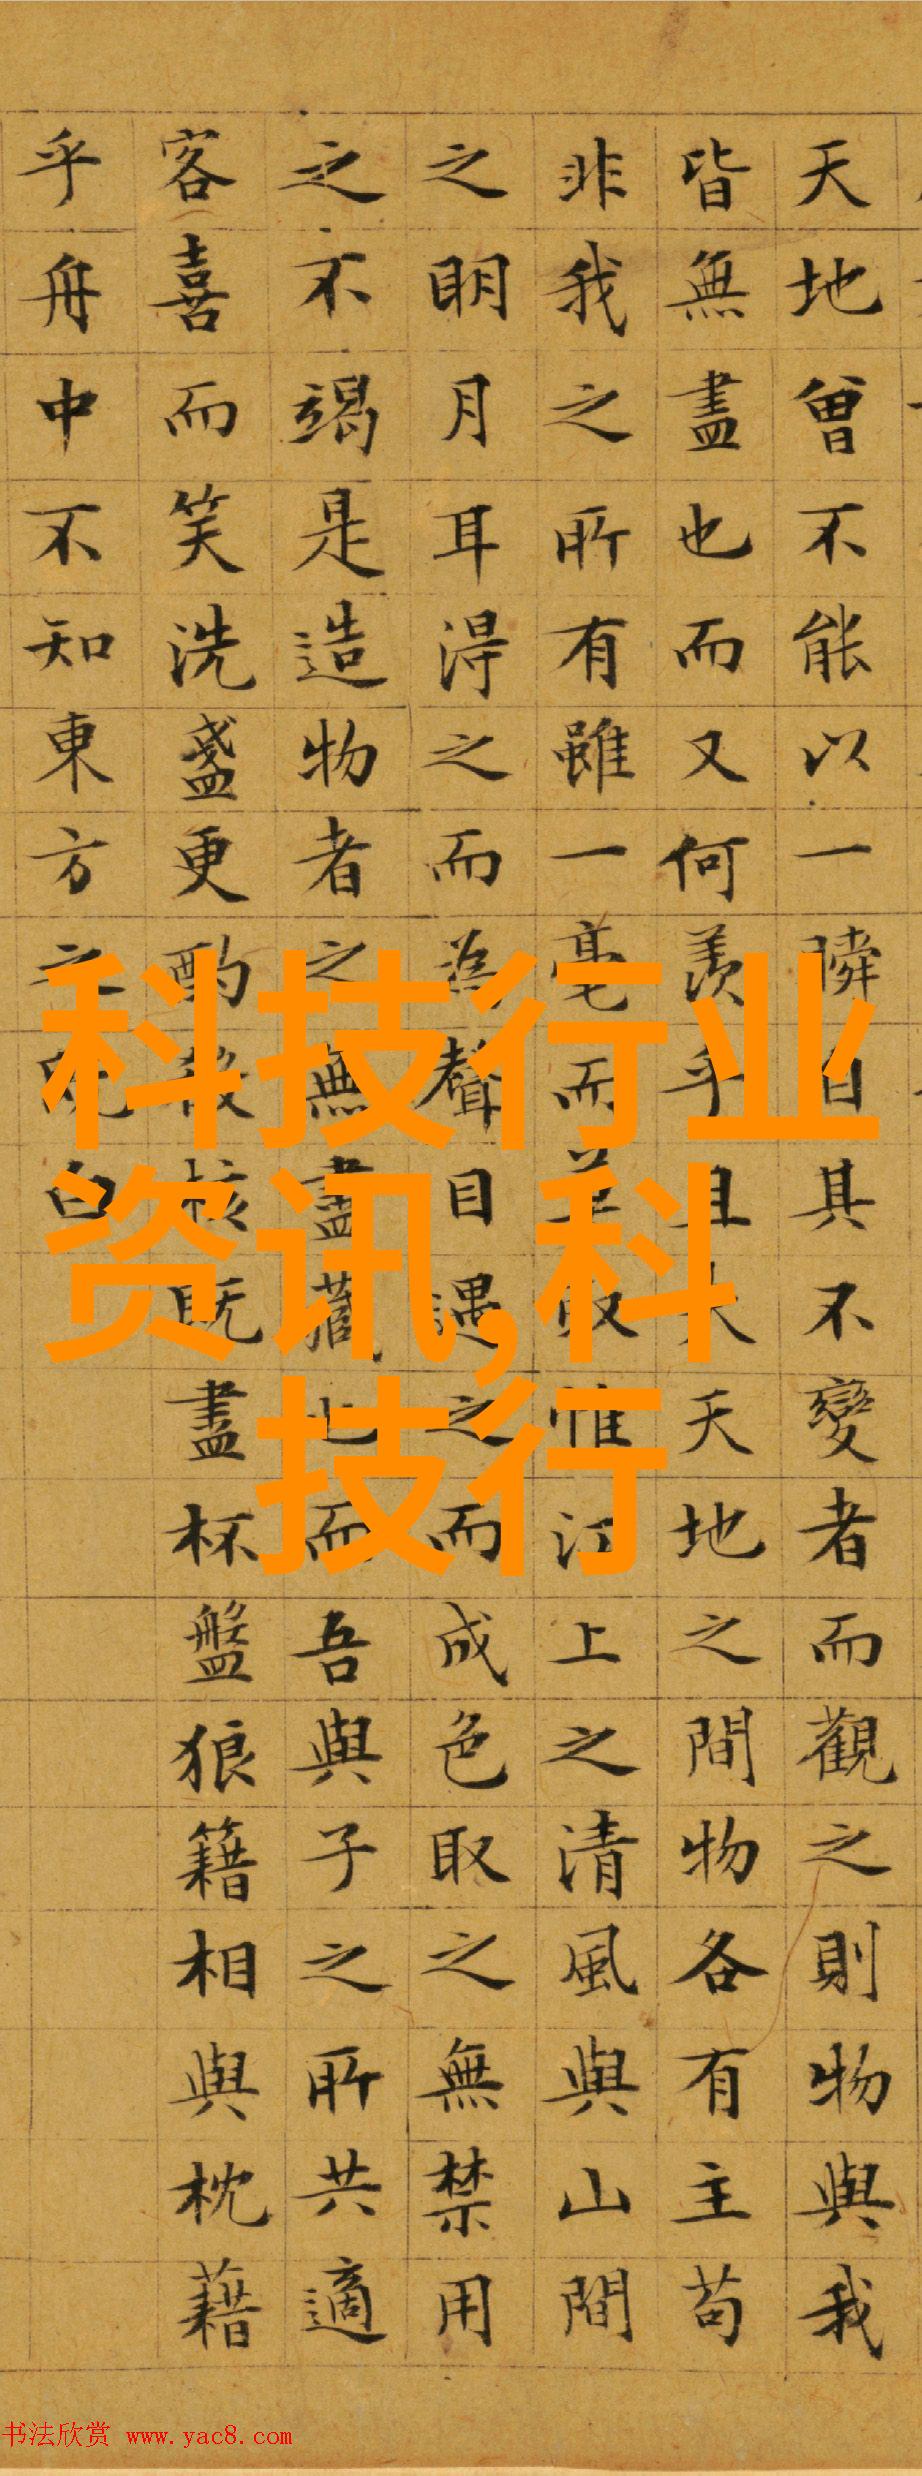 天地曾不能以一瞬自其不變者而觀之則物與我
皆無盡也而又何羨乎且夫天地之間物各有主苟
非我之所有雖一毫而莫取惟江上之清風與山間
之明月耳得之而為聲目遇之而成色取之無禁用
之不竭是造物者之無盡藏也而吾與子之所共適
客喜而笑洗盞更酌殽核既盡杯盤狼籍相與枕藉
乎舟中不知東方之既白
科技行业
资讯,科
技行
书法欣赏 www.yac8.com